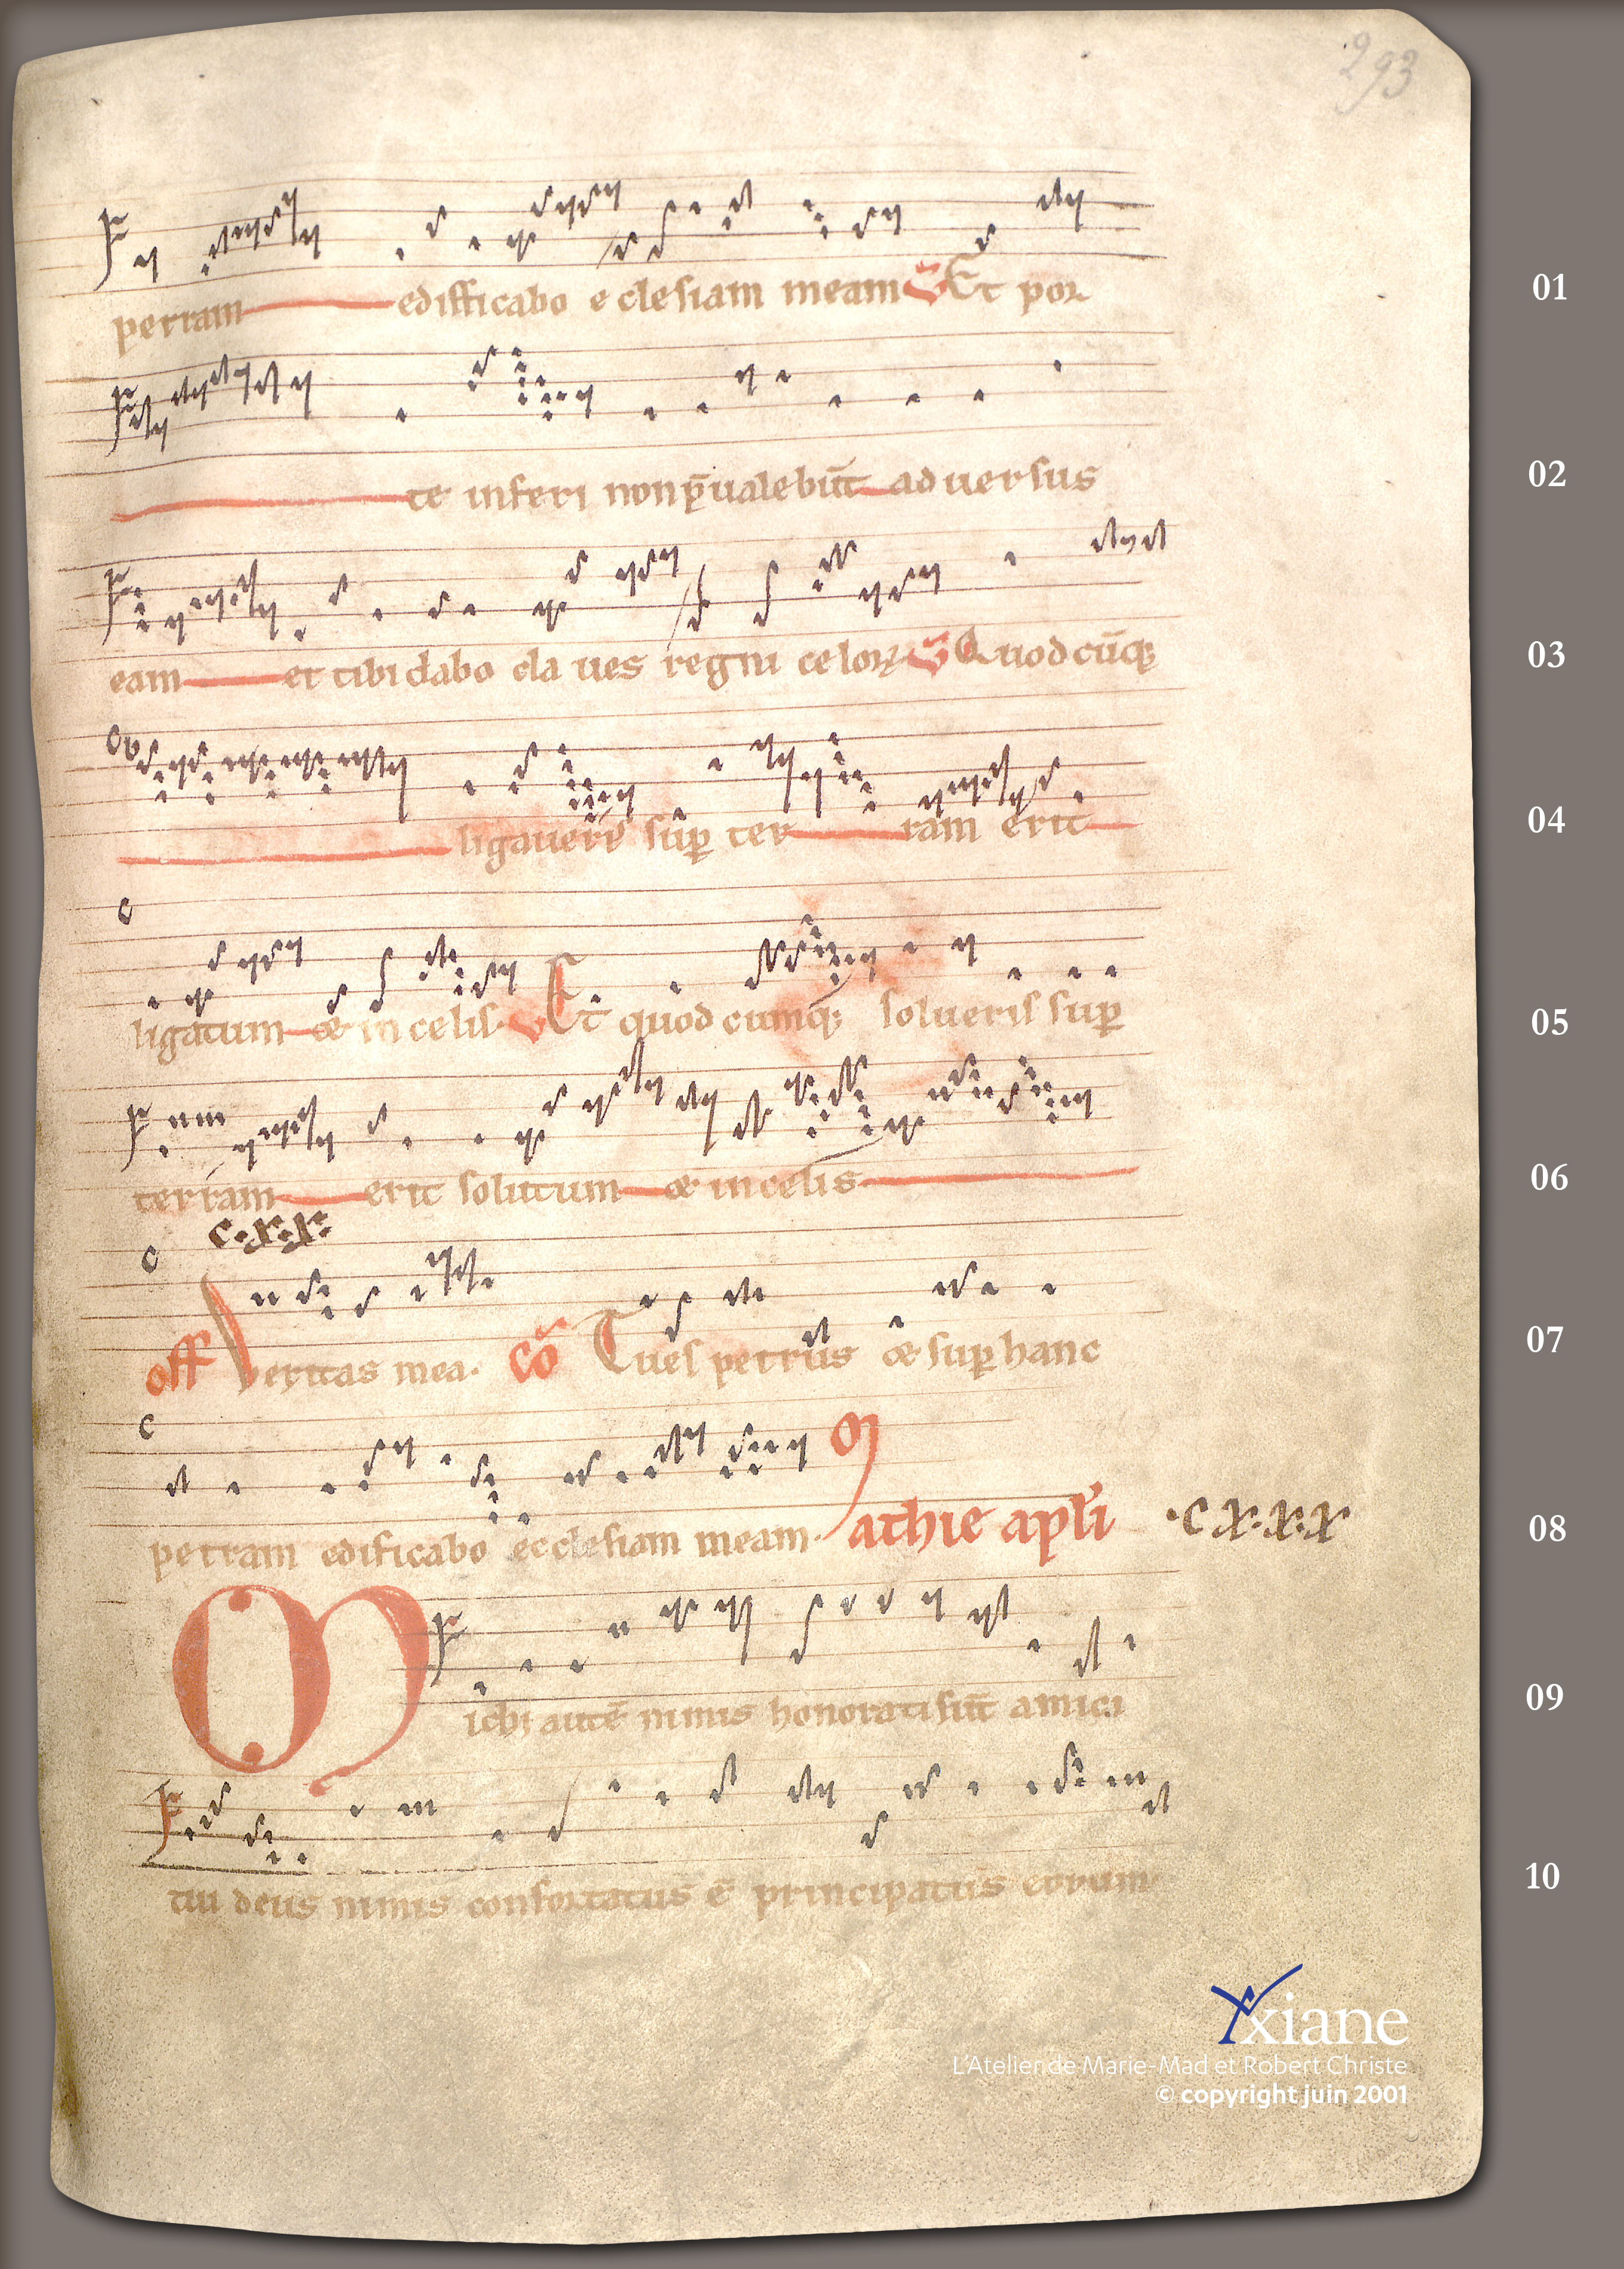 293
petram edifficabo eclesiam meam ℣ Et por 01
te inferi non p̄ualebūt aduersus 02
eam et tibi dabo claues regni celoꝝ ℣ Quodcūqꝫ 03
ligaueris sup̱ terram erit 04
ligatum & in celis ℣ Et quodcumqꝫ solueris sup̱ 05
terram erit solutum & in celis 06
c.x.x.
off Veritas mea. cō Tu es petrus & sup̱ hanc 07
petram edificabo ecclesiam meam. Mathie apl̄i .c x.x.x 08
Michi autē nimis honorati sūt amici 09
tui deus nimis confortatus ē principatus eorum 10
xiane
L'Atelier de Marie-Mad et Robert Christe
© copyright juin 2001